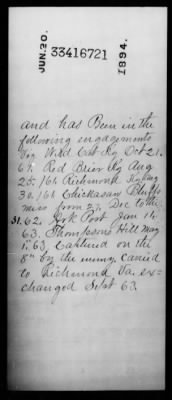 JUN. 20.
33416721
1894.
and has Been in the
following engagements
Viz Wild Cat Ky Oct 21.
61. Red Brier Ky Aug
25./62 Richmond Ky Aug
30./62 Chickasaw Bluffs
miss from 27 Dec to the
31. 62. Ark Post Jan 11
63. Thompsons Hill May
1. 63. Captured on the
8th by the enemy carried
to Richmond Va. ex-
changed Sept 63.